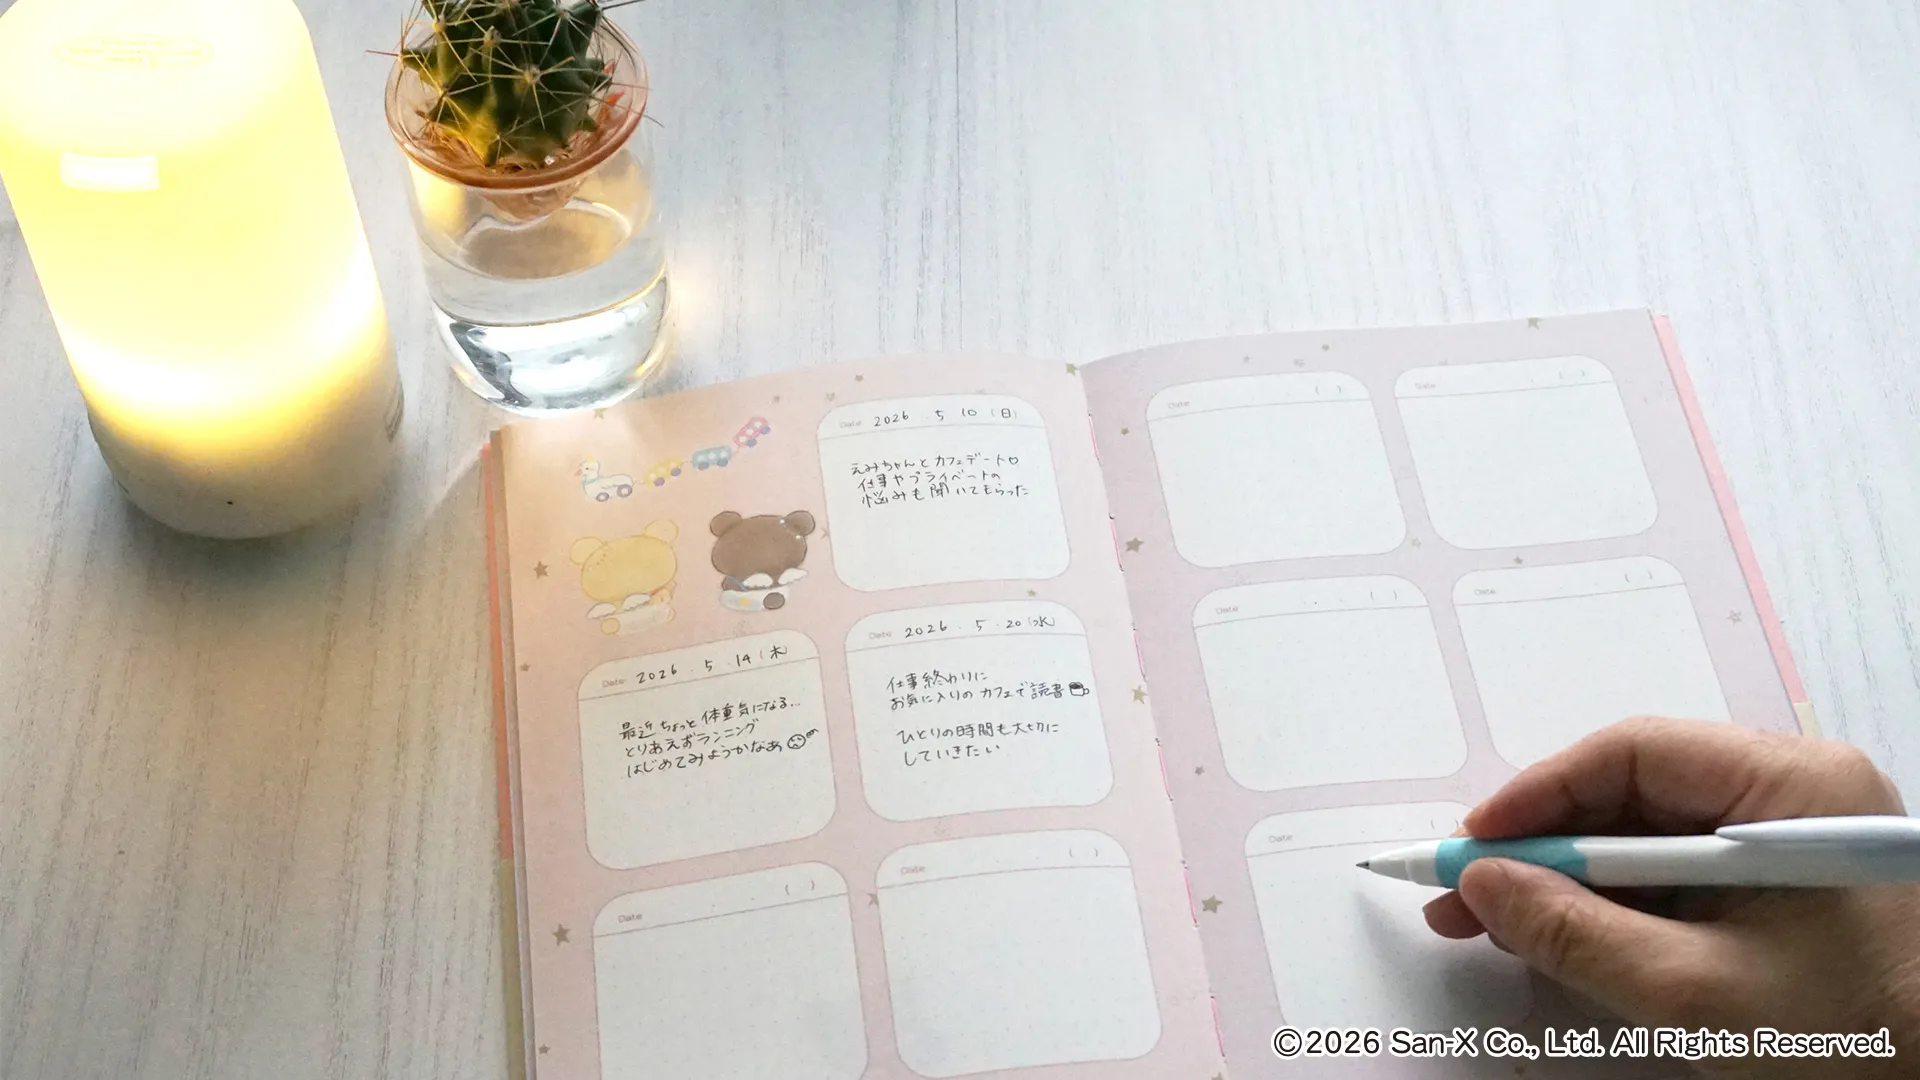 Date 2026 . 5 . 10 (日)
えみちゃんとカフェデート♡
仕事やプライベートの
悩みも聞いてもらった
Date 2026 . 5 . 14 (木)
最近ちょっと体重気になる…
とりあえずランニング
はじめてみようかなあ
Date 2026 . 5 . 20 (水)
仕事終わりに
お気に入りのカフェで読書
ひとりの時間も大切に
していきたい
Date . . ( )
Date . . ( )
Date . . ( )
Date . . ( )
Date . . ( )
Date . . ( )
Date . . ( )
©2026 San-X Co., Ltd. All Rights Reserved.